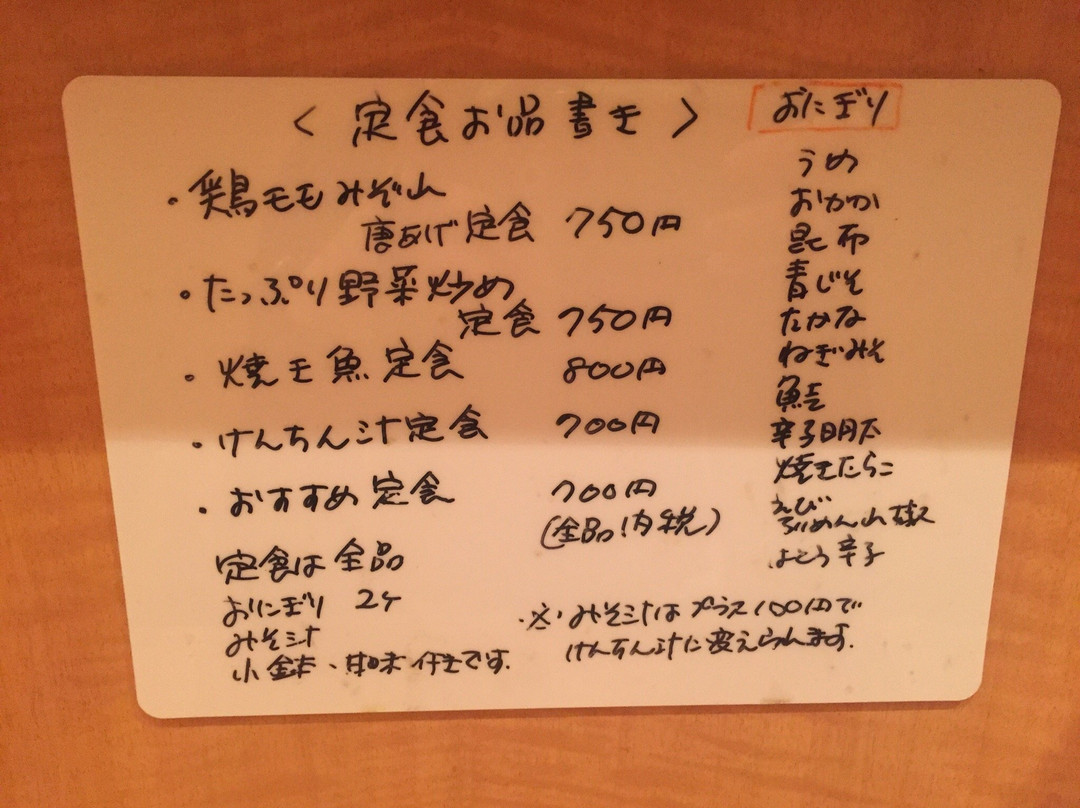 〈 定食お品書き 〉
・鶏モモみぞ山
唐あげ定食 750円
・たっぷり野菜炒め
定食 750円
・焼き魚定食 800円
・けんちん汁定食 700円
・おすすめ定食 700円
(全品内税)
定食は全品
おにぎり 2ケ
みそ汁
小鉢、甘味付きです。
※みそ汁はプラス100円で
けんちん汁に変えられます。
おにぎり
うめ
おかか
昆布
青じそ
たかな
ねぎみそ
鮭
辛子明太
焼きたらこ
えび
ちりめん山椒
辛子